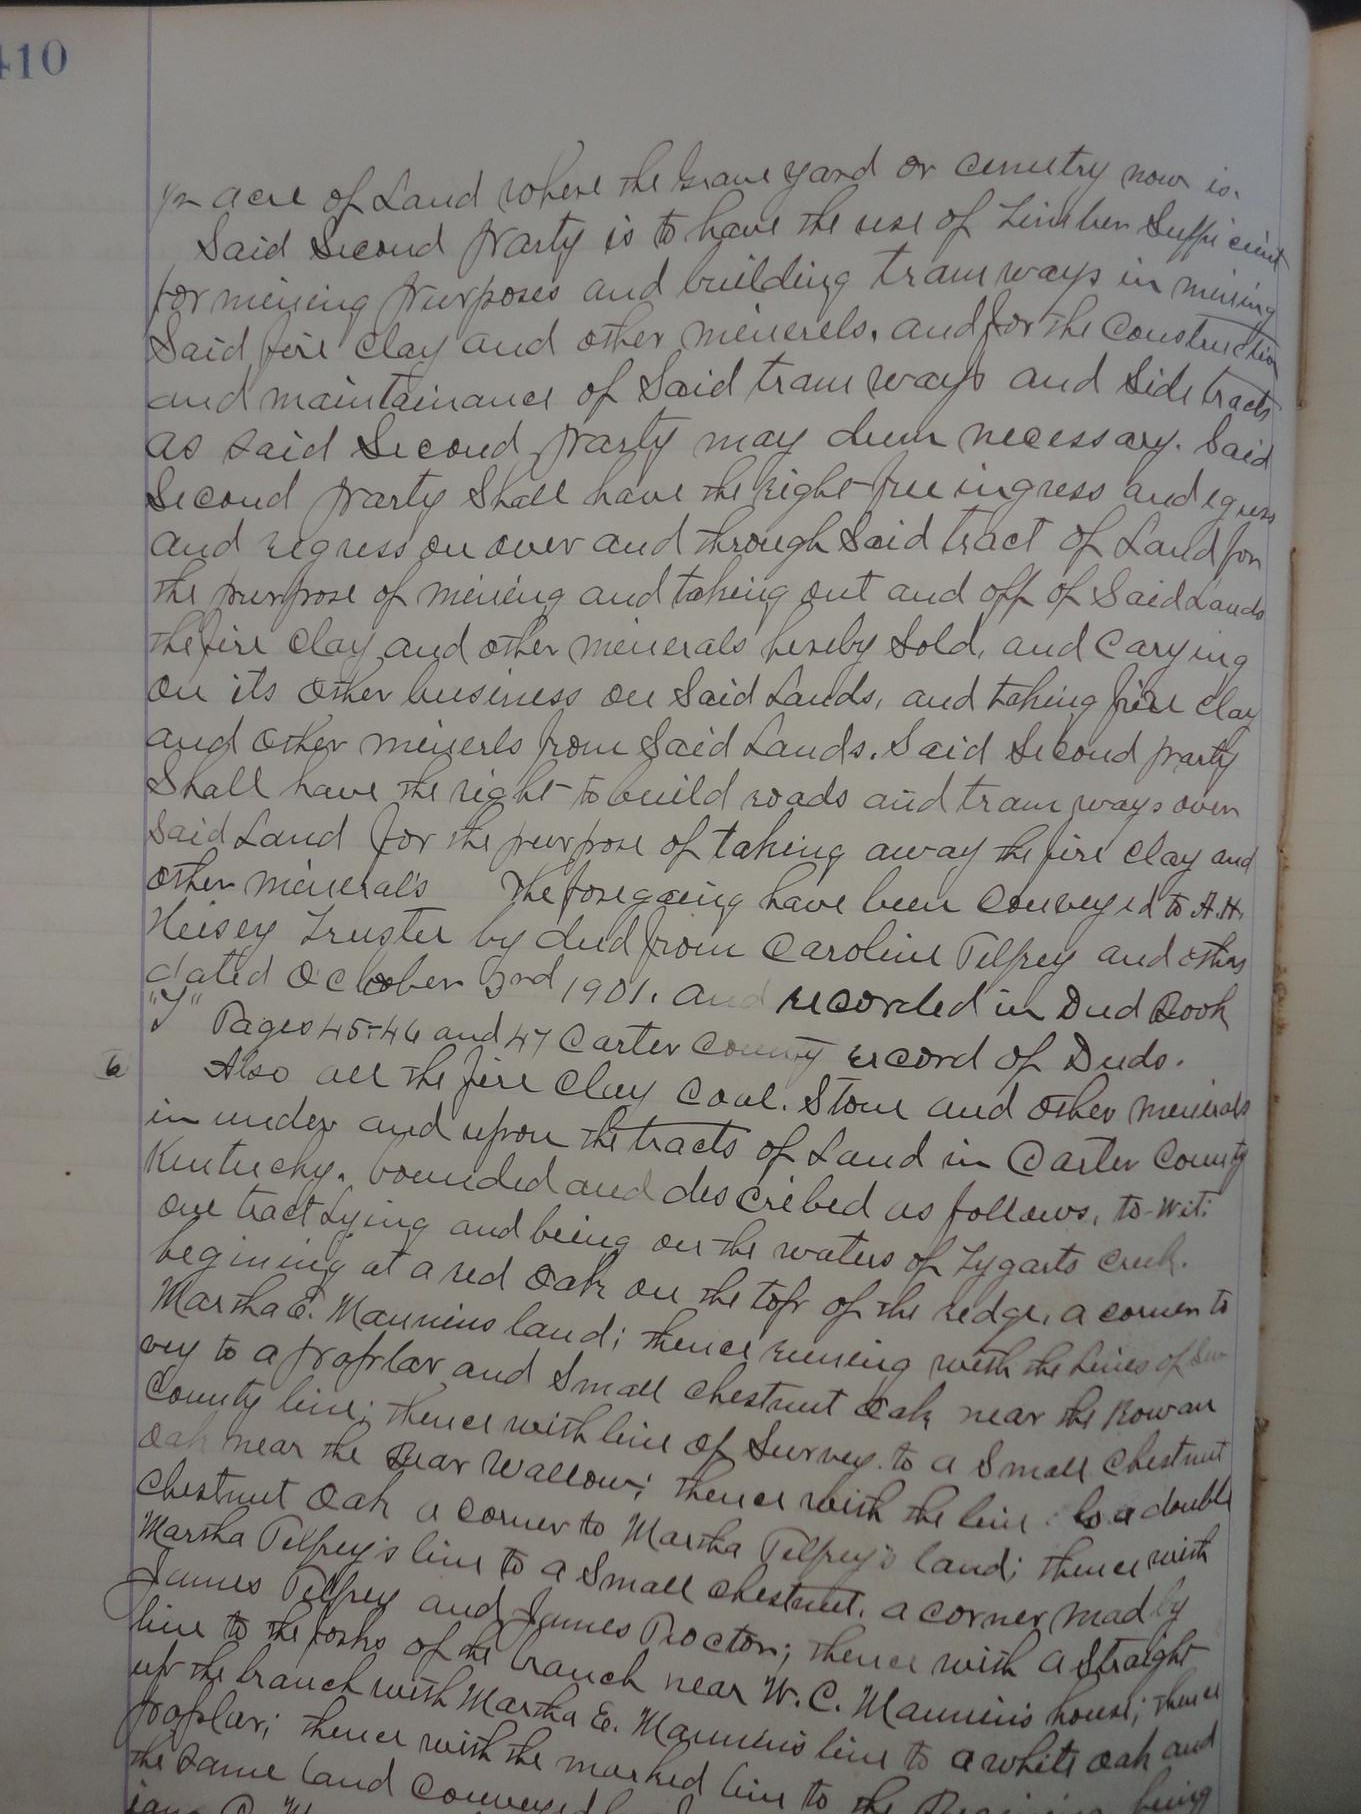 410
acre of Land where the Grave yard or cemetry now is.
Said Second party is to have the use of Timber Sufficient
for mining purposes and building tram ways in mining
Said fire clay and other minerels, and for the construction
and maintainance of Said tram ways and Side tracts
as said Second party may deem necessary. Said
Second party Shall have the right free ingress and egress
and regress on over and through Said tract of Land for
the purpose of mining and taking out and off of Said Lands
the fire clay and other minerals hereby Sold, and Carying
on its other business on Said Lands, and taking fire clay
and other minerls from Said Lands. Said Second party
Shall have the right to build roads and tram ways over
Said Land for the purpose of taking away the fire clay and
other mineral's The foregoing have been conveyed to A.H.
Heisey Trustee by deed from Caroline Pelfrey and others
dated October 3rd 1901. and recorded in Deed Book
Pages 45-46 and 47 Carter County record of Deeds.
6 Also all the fire clay coal. Stone and other minerals
in under and upon the tracts of Land in Carter County
Kentucky. bounded and described as follows, to-wit:
one tract Lying and being on the waters of Tygarts creek.
begining at a red Oak on the top of the redge, a corner to
Martha E. Mannins land; thence runing with the lines of Sur
vey to a poplar and Small chestnut Oak near the Rowan
County line; thence with line of Survey to a Small chestnut
Oak near the Bear Wallow; thence with the line to a double
chestnut Oak a corner to Martha Pelfrey's land; thence with
Martha Pelfrey's line to a Small chestnut, a corner mad by
James Pelfrey and James Proctor; thence with a straight
line to the forks of the branch near W. C. Mannin's house; thence
up the branch with Martha E. Mannin's line to a white oak and
poplar; thence with the marked line to the Begining being
the same land conveyed